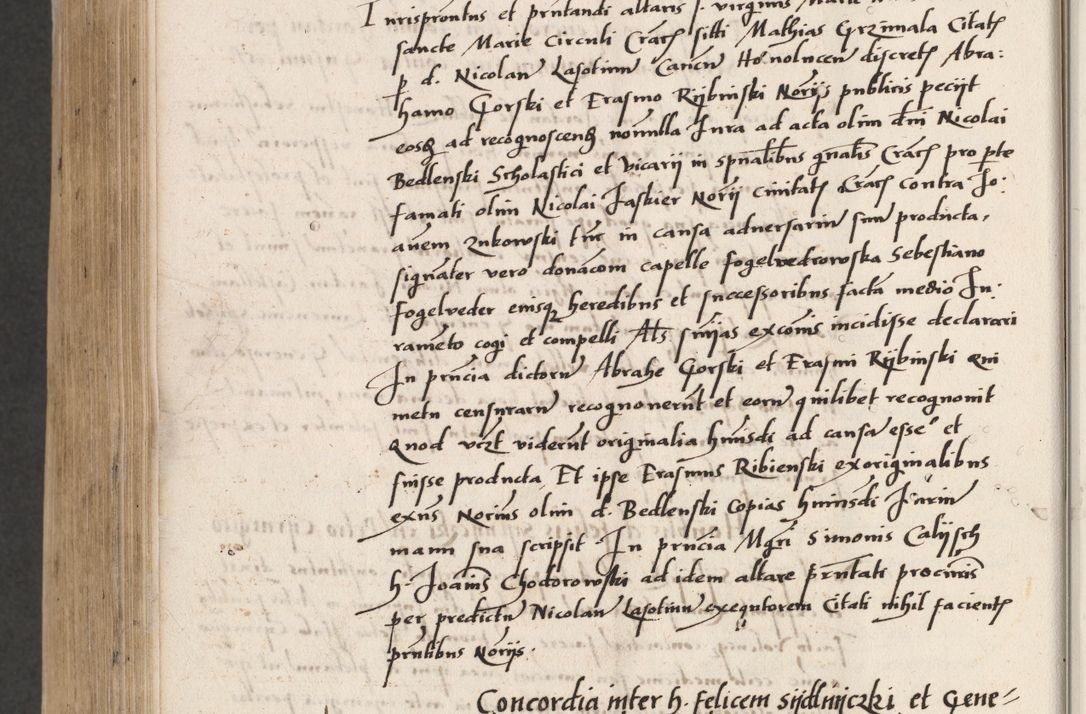 Iurisprontus et prntandi altaris s. virginis Marie
sancte Marie Circuli Crac siti Mathias Grzimala Citat
p d. Nicolau Lasotinu Canicu Ho nolncen discret Abra:
hamo Gorski et Erasmo Rijbinski Norijs publicis pecijt
eosq ad recognoscend nonnulla Iura ad acta olim dni Nicolai
Bedlenski Scholastici et vicarij in spnalibus gnalis Crac pro pte
famati olim Nicolai Jaskier Norij ciuitat Crac contra Jo:
anem Zukowski tuc in causa aduersariu suu producta,
signater vero donacom capelle fogelvedrowska Sebestiano
Fogelveder eiusq heredibus et successoribus facta medio Iu:
rameto cogi et compelli Als snias excomis incidisse declarari
In pncia dictoru Abrahe Gorski et Erasmi Rijbinski qui
metu censuraru recognouerut et eoru quilibet recognouit
Quod vczt viderut originalia huiusdi ad causa esse et
fuisse producta, Et ipse Erasmus Ribienski ex originalibus
exns Norius olim d. Bedlenski Copias huiusdi Iuriu
manu sua scripsit. In pncia Mgri Simonis Calijsch
h. Joanis Chodorowski ad idem altare prntati procuris
per predictu Nicolau Lasotinu exequtorem Citati nihil facient
pntibus Norijs.
Concordia inter h. Felicem Sijdlnijczki et Gene=